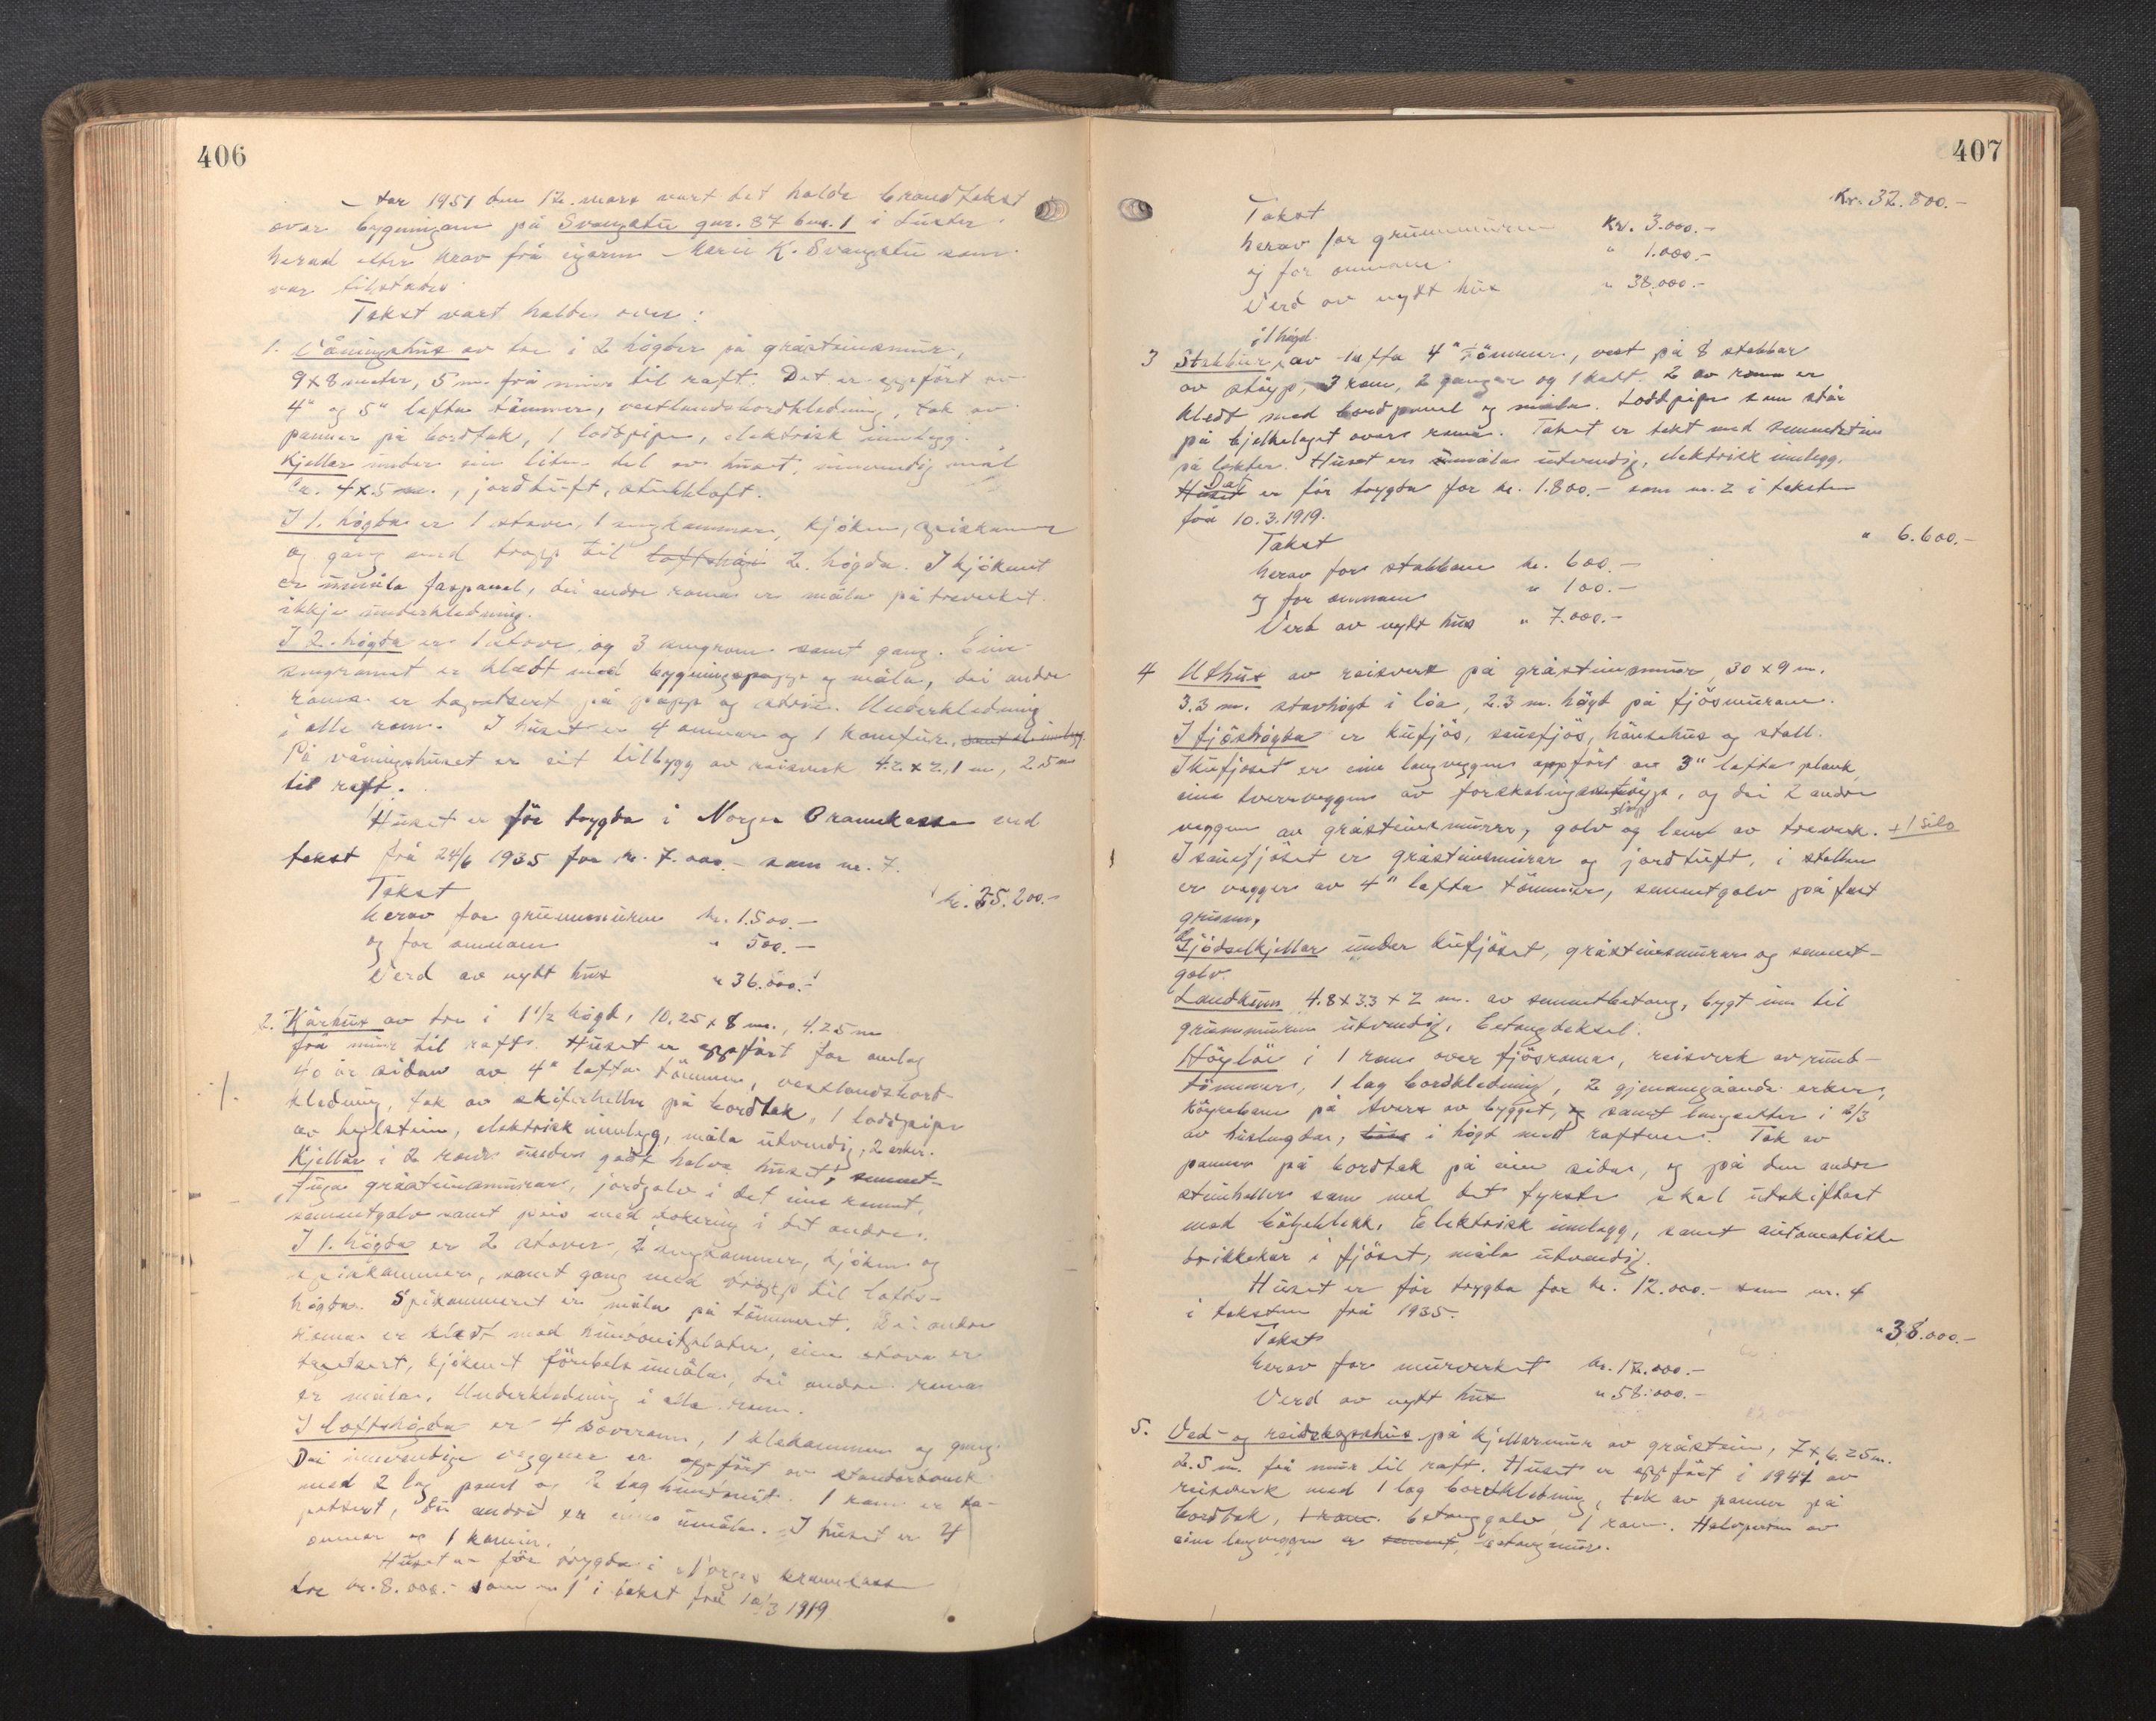 406
År 1951 den 12. mars vart det halde brandtakst
over bygningane på Svangstu gnr. 87 bnr. 1 i Luster
herad etter krav frå eigaren Marie K. Svangstu som
var tilstades.
Takst vart halden over:
1. Våningshus av tre i 2 högder på gråsteinsmur,
9 x 8 meter, 5 m. frå mur til raft. Det er uppfört av
4" og 5" lafta tömmer, vestlandsbordkledning, tak av
panner på bordtak, 1 loddpipe, elektrisk innlegg.
Kjellar under ein liten del av huset, innvendig mål
ca. 4 x 5 m., jordtuft, stukkloft.
I 1. högda er 1 stove, 1 sengkammer, kjöken, spiskammer
og gang med tropp til loftshögd 2. högda. I kjökenet
er umåla faspanel, dei andre roma er måla på treverket.
ikkje underkledning.
I 2. högda er 1 stove og 3 sengrom samt gang. Eine
sengromet er kledt med bygningspapp og måla, dei andre
roma er tapetsert på papp og strie. Underkledning
i alle rom. I huset er 4 omnar og 1 komfur, samt el. innlegg.
På våningshuset er eit tilbygg av reisverk 4.2 x 2,1 m, 2.5 m
til raft.
Huset er för trygda i Norges Brannkasse ved
takst frå 24/6 1935 for kr. 7.000.- som nr. 7.
Takst kr. 25.200.-
herav for grunnmuren kr. 1.500.-
og for omnane " 500.-
Verd av nytt hus " 36.000.-
2. Kårhus av tre i 1 1/2 högd, 10.25 x 8 m., 4.25 m
frå mur til raft. Huset er uppfört for omlag
40 år sidan av 4" lafta tömmer, vestlandsbord-
kledning, tak av skiferheller på bordtak, 1 loddpipe
av teglstein, elektrisk innlegg, måla utvendig, 2 arker.
Kjellar i 2 rom under godt halve huset, sement-
fuga gråsteinsmurar, jordgolv i det eine romet,
sementgolv samt peis med bakaring i det andre.
I 1. högda er 2 stover, 2 sengkammer, kjöken og
spiskammer, samt gang med tropp til lofts-
högda. Spiskammeret er måla på tömmeret. Dei andre
roma er kledt med hunsonitplater, eine stova er
tapetsert, kjökenet förebels umåla, dei andre roma
er måla. Underkledning i alle rom.
I loftshögda er 4 soverom, 1 klekammer og gang.
Dei innvendige veggene er uppfört av standerbank
med 2 lag panel og 2 lag hunsonit. 1 rom er ta-
petsert, dei andre er enno umåla. I huset er 4
omnar og 1 kamin.
Huset er för trygda i Norges brannkasse
for kr. 8.000.- som nr. 1 i takst frå 10/3 1919
407
Takst Kr. 32.800.-
herav for grunnmuren Kr. 3.000.-
og for omnane " 1.000.-
Verd av nytt hus " 38.000.-
i 1 högd
3 Stabbur, av lafta 4" tömmer, vest på 8 stabbar
av støyp, 3 rom, 2 ganger og 1 kott. 2 av roma er
kledt med bordpanel og måla. Loddpipe som står
på bjelkelaget over roma. Taket er tekt med sementstein
på lekter. Huset er umåla utvendig, elektrisk innlegg.
Huset Det er för trygda for kr. 1.800.- som nr. 2 i taksten
frå 10.3.1919.
Takst " 6.600.-
herav for stabbane kr. 600.-
og for omnane " 100.-
Verd av nytt hus " 7.000.-
4 Uthus av reisverk på gråsteinsmur, 30 x 9 m.
3.3 m. stavhögt i löa, 2.3 m. högt på fjösmurane.
I fjöshögda er kufjös, sauefjös, hönsehus og stall.
I kufjöset er eine langveggen uppfört av 3" lafta plank,
eine tverrveggen av forskalingsstöyp, og dei 2 andre
veggene av gråsteinsmurar, golv og lemt av treverk. + 1 silo
I sauefjöset er gråsteinsmurar og jordtuft, i stallen
er vegger av 4" lafta tömmer, sementgolv på fast
grunn.
Gjödselkjellar under kufjöset, gråsteinsmurar og sement-
golv.
Landkum 4.8 x 3.3 x 2 m. av sementbetong, bygt inn til
grunnmuren utvendig, betongdeksel.
Höyløe i 1 rom over fjösroma, reisverk av rund-
tömmer, 1 lag bordkledning, 2 gjenomgåande arker,
köyrebane på tvers av bygget, og samt langsetter i 2/3
av huslengda, i högd med raftene. Tak av
panner på bordtak på ein sida, og på den andre
steinheller som med det fyrste skal utskiftast
med bölgeblekk. Elektrisk innlegg, samt automatiske
drikkekar i fjöset, måla utvendig.
Huset er för trygda for kr. 12.000.- som nr. 4
i taksten frå 1935.
Takst " 38.000.-
herav for murverket kr. 12.000.-
Verd av nytt hus " 58.000.-
5. Ved- og reidskapshus på kjellarmur av gråstein, 7 x 6.25 m.
2.5 m. frå mur til raft. Huset er uppfört i 1947 av
reisverk med 1 lag bordkledning, tak av panner på
bordtak, 1 rom. betonggolv, 1 rom. Halvparten av
eine langveggen er betongmur.